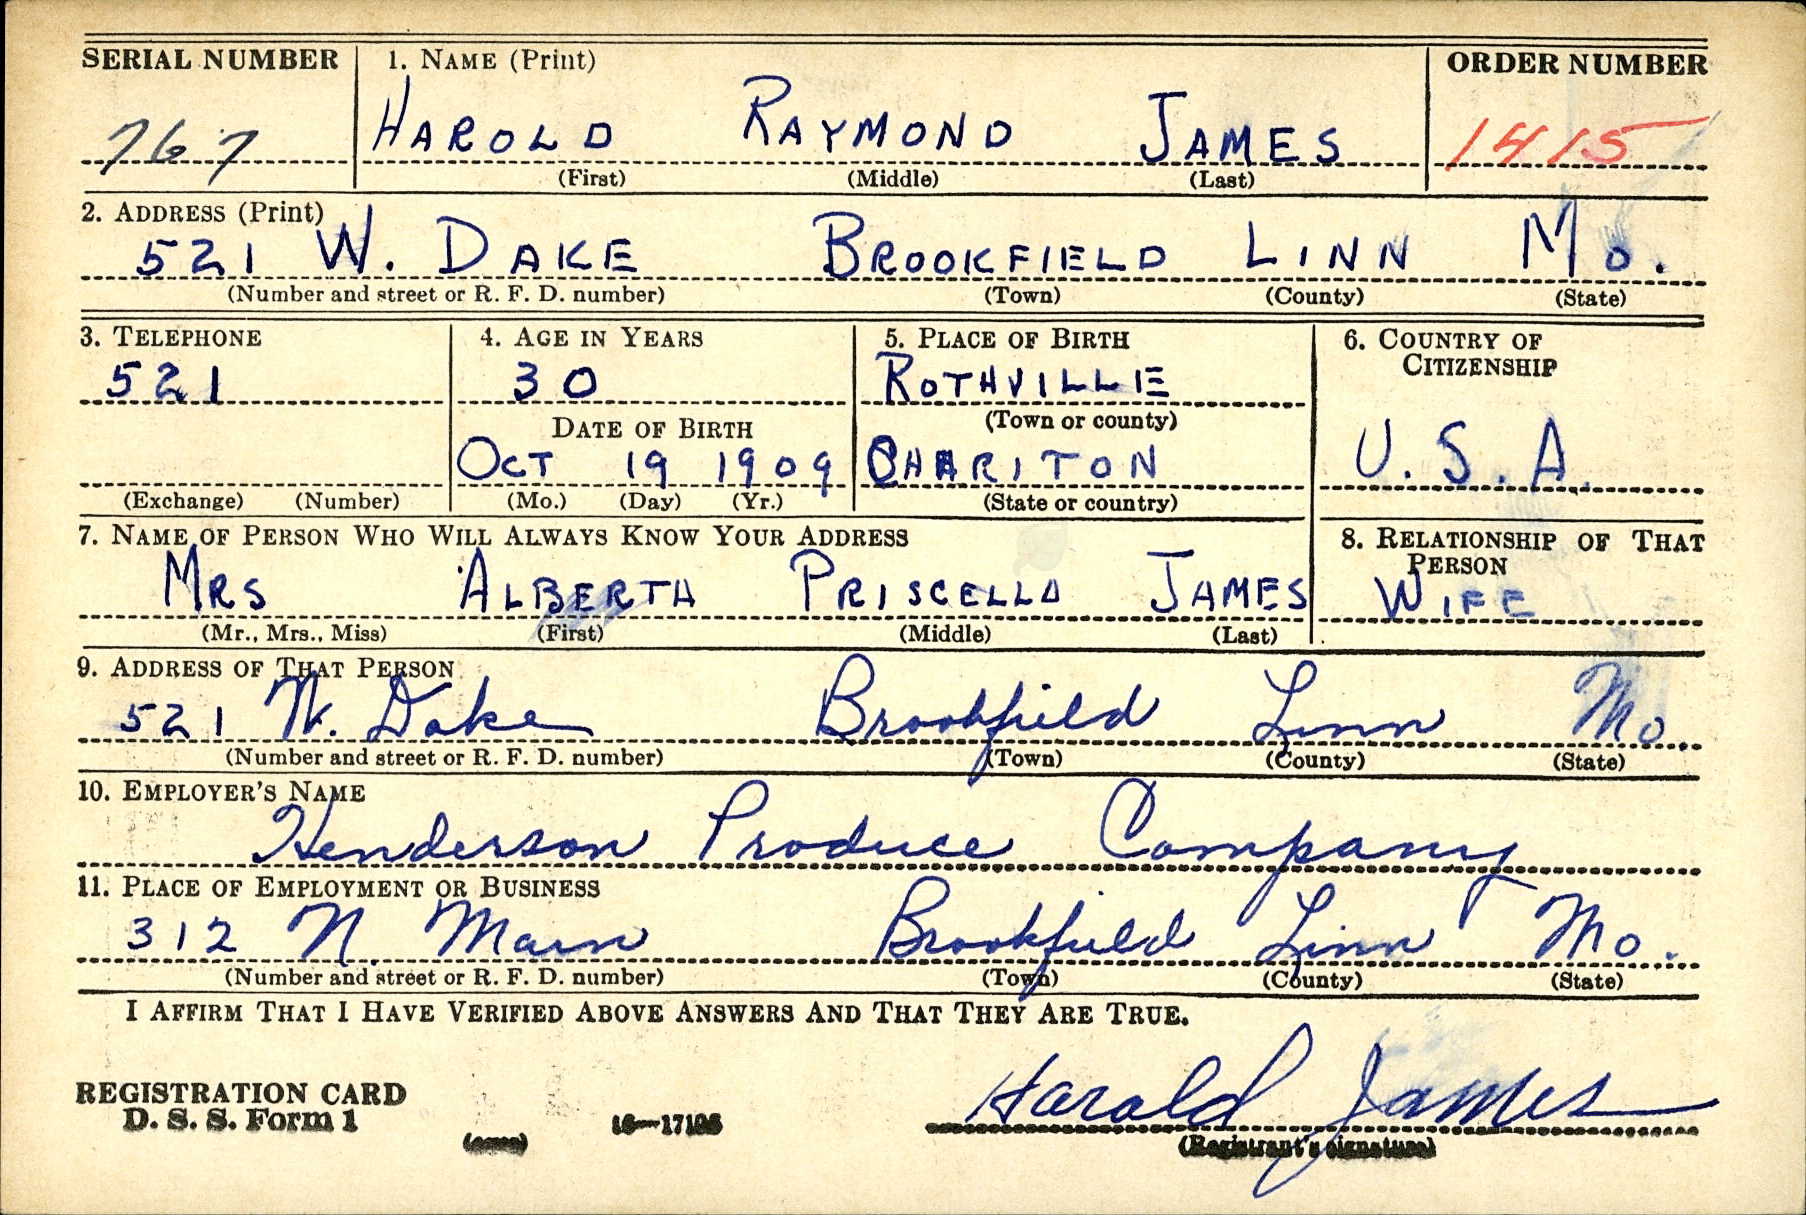 SERIAL NUMBER 1. NAME (Print) ORDER NUMBER
767 HAROLD RAYMOND JAMES 1415
(First) (Middle) (Last)
2. ADDRESS (Print)
521 W. DAKE BROOKFIELD LINN Mo.
(Number and street or R. F. D. number) (Town) (County) (State)
3. TELEPHONE 4. AGE IN YEARS 5. PLACE OF BIRTH 6. COUNTRY OF CITIZENSHIP
521 30 ROTHVILLE
(Town or county)
DATE OF BIRTH
OCT 19 1909 CHARITON U.S.A.
(Exchange) (Number) (Mo.) (Day) (Yr.) (State or country)
7. NAME OF PERSON WHO WILL ALWAYS KNOW YOUR ADDRESS 8. RELATIONSHIP OF THAT PERSON
MRS ALBERTA PRISCELLA JAMES WIFE
(Mr., Mrs., Miss) (First) (Middle) (Last)
9. ADDRESS OF THAT PERSON
521 W. Dake Brookfield Linn Mo.
(Number and street or R. F. D. number) (Town) (County) (State)
10. EMPLOYER'S NAME
Henderson Produce Company
11. PLACE OF EMPLOYMENT OR BUSINESS
312 N. Main Brookfield Linn Mo.
(Number and street or R. F. D. number) (Town) (County) (State)
I AFFIRM THAT I HAVE VERIFIED ABOVE ANSWERS AND THAT THEY ARE TRUE.
REGISTRATION CARD
D. S. S. Form 1
(over) 16—17105
Harold James
(Registrant's signature)